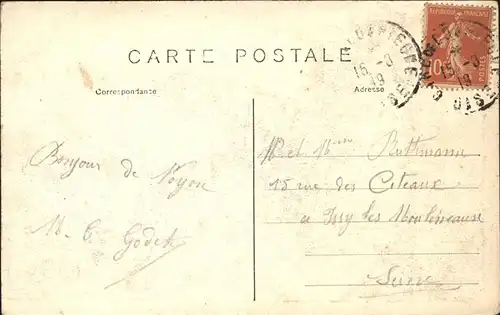 CARTE POSTALE
Correspondance
Adresse
REPUBLIQUE FRANÇAISE
10
POSTES
15-
19
OISE
Bonjour de Noyon
M. C. Godet
M et Mme Ruttmann
15 rue des Citeaux
a Issy les Moulineaux
Seine